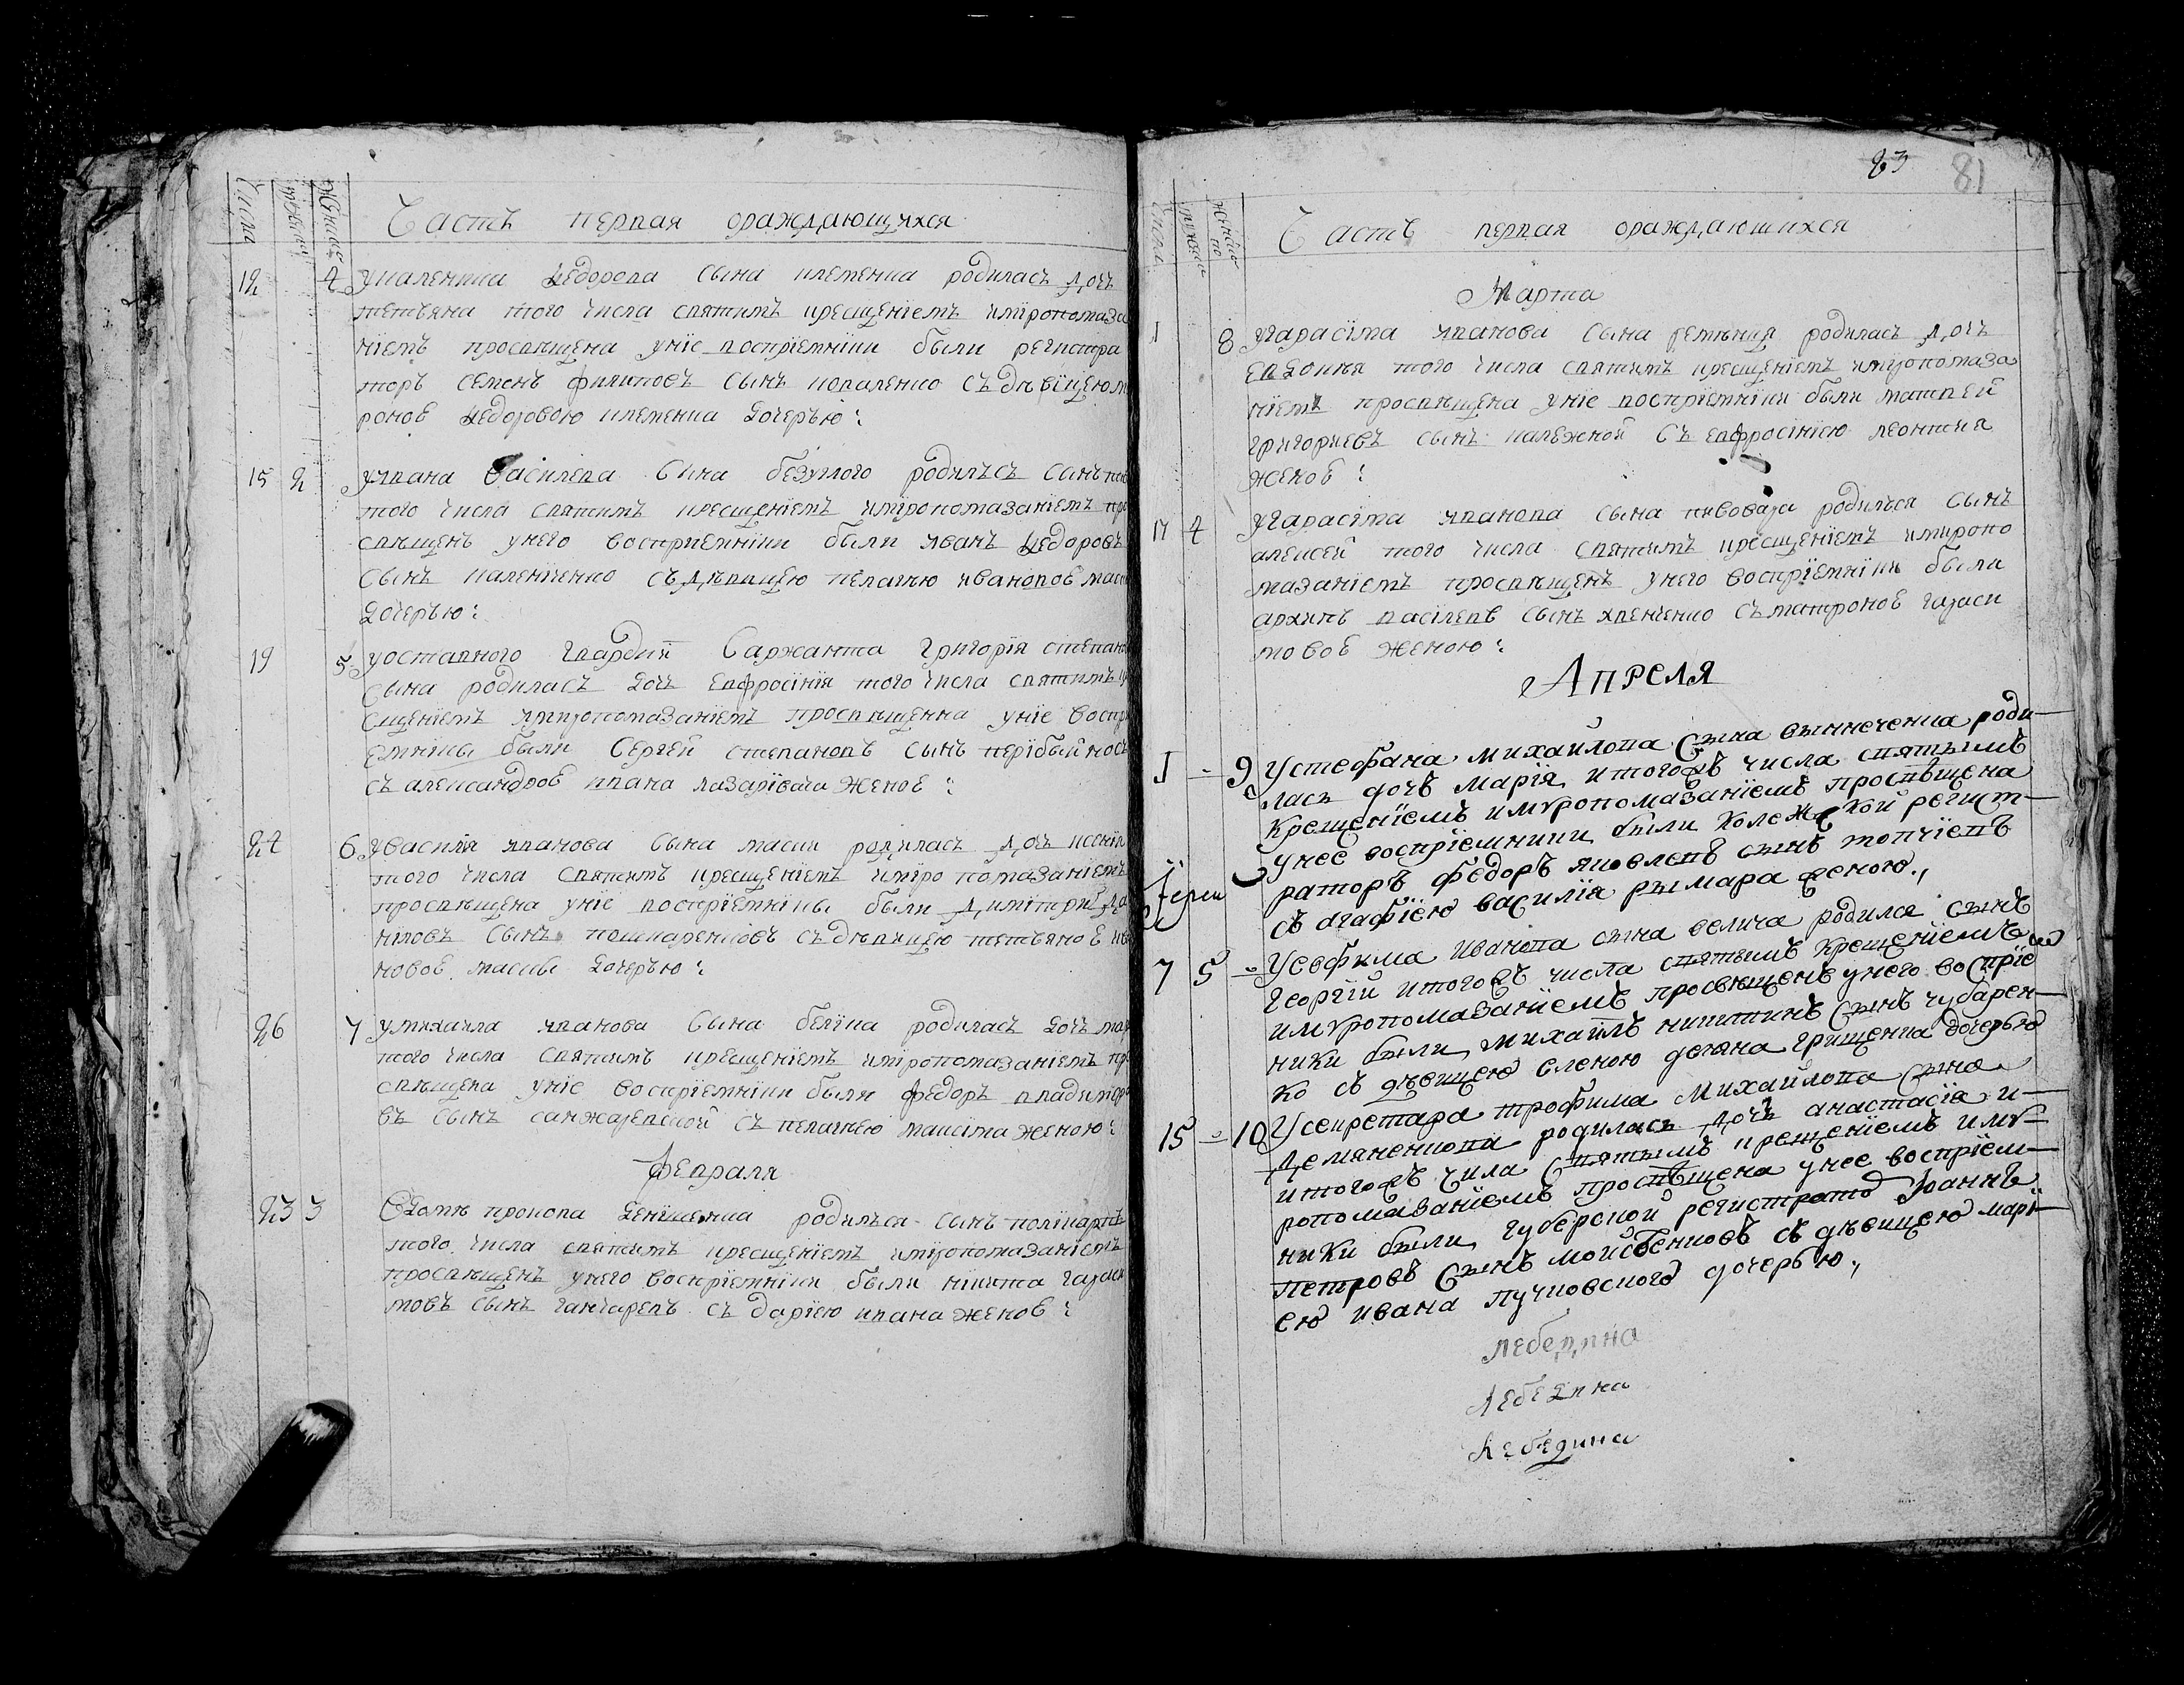 Числа
мужеска
женска
Часть первая ораждающихся
12 4 Укаленика Федорова сына клеменка родилась дочь
тетьяна того числа святимъ крещениемъ имѵропомаза
ниемъ просвѣщена унїе восприемники были регистра
торъ семенъ филиповъ сынъ коваленко съ дѣвицею
Федоровою клеменка дочерью:
15 2 Уивана василева сына безуглого родилъсъ синъ
того числа святимъ крещениемъ имѵропомазаніемъ
свѣщенъ унего восприемники были иванъ Федоровъ
сынъ каленіченко съ дѣвицею пелагією ивановов
дочерью:
19 5 Уоставного гвардїи Саржанта григорїя степано
сына родилась дочь евфросїнїя того числа святимъ
щенїемъ имѵропомазанїемъ просвѣщенна унїе воспр
емники были Сергей степановъ сынъ
съ александров ивана лазарївича женов:
24 6 Увасилїя иванова сына масик родилась дочь ксенїя
того числа святимъ крещенїемъ имѵропомазанїемъ
просвѣщена унїе восприемники были димїтрий да
ніловъ сынъ пошкаренковъ съ дѣвицею тетьянов
новов масика дочерью:
26 7 Умихаила иванова сына белїка родилась дочь
того числа святимъ крещенїемъ имѵропомазанїемъ
свѣщена унїе восприемники были федоръ владимїро
въ сынъ санжаревской съ пелагїею максїма женою:
февраля
23 3 прокопа денїшенка родилъся сынъ полїкарпъ
того числа святимъ крещенїемъ имѵропомазанїемъ
просвѣщенъ унего восприемники были нїкита гараси
мовъ сынъ ганчаревъ съ дарїею ивана женов:
83 81
Числа
мужеска
женско
Часть первая ораждающихся
Марта
1 8 Угарасїма иванова сына родилась дочь
евдокия того числа святимъ крещенїемъ имѵропомаза
нїемъ просвѣщена унїе восприемники были матвей
григориевъ сынъ калюжной съ евфросінїею леонтия
женов:
17 4 Угарасїма иванова сына пивовара родилься сынъ
алексей того числа святимъ крещенїемъ имѵропо
мазанїемъ просвѣщенъ унего восприемники были
архипъ васїлевъ сынъ съ матронов гараси
мовов женою:
Апреля
1 9 Устефана михайлова сына винниченка роди
лась дочь марїя итогожъ числа святымъ
крещенїемъ имѵропомазанїемъ просвѣщена
унее воспрїемники были колежской регист
раторъ федоръ яковлевъ сынъ топчїевъ
съ агафїею василїя рымара женою.,
7 5 Уевфима иванова сына велича родился сынъ
георгїй итогожъ числа святымъ крещенїемъ
имѵропомазанїемъ просвѣщенъ унего воспрїе
ники были михаилъ никитинъ сынъ чубарен
ко съ дѣвицею еленою демяна грищенка дочерью
15 10 Усекретара трофима михайлова сына
демяненкова родилась дочь анастасїя и
итогожъ чила святымъ крещенїемъ имѵ
ропомазанїемъ просвѣщена унее воспрїем
ники были губерской регистрато Іоаннъ
петровъ сынъ мойсѣенковъ съ дѣвицею марї
ею ивана пучковского дочерью.,
лебедина
лебедина
лебедина